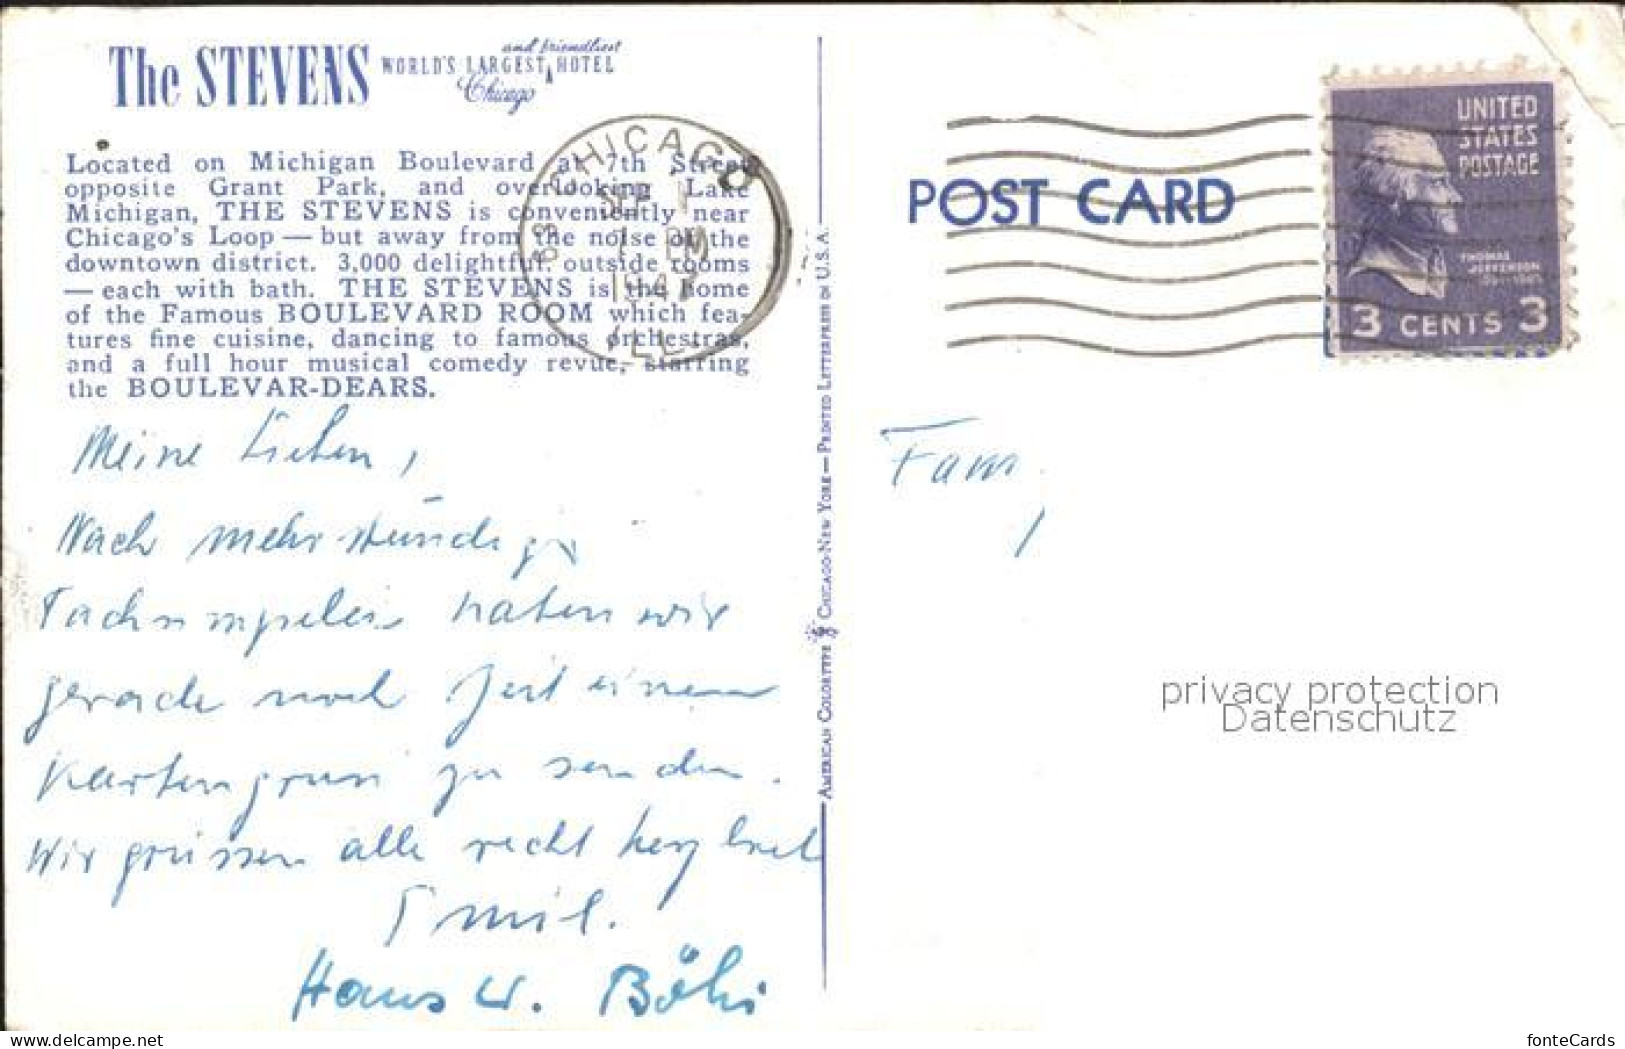 The STEVENS
and friendliest
WORLD'S LARGEST HOTEL
Chicago
Located on Michigan Boulevard at 7th Street
opposite Grant Park, and overlooking Lake
Michigan, THE STEVENS is conveniently near
Chicago's Loop — but away from the noise of the
downtown district. 3,000 delightful, outside rooms
— each with bath. THE STEVENS is the home
of the Famous BOULEVARD ROOM which fea-
tures fine cuisine, dancing to famous orchestras,
and a full hour musical comedy revue, starring
the BOULEVAR-DEARS.
Meine Lieben,
Nach mehrstündigem
haben wir
gerade noch Zeit einen
Kartengruss zu senden.
Wir grüssen alle recht herzlich
Emil.
Hans W. Böhi
AMERICAN COLORTYPE CHICAGO-NEW YORK — PRINTED LETTERPRESS IN U.S.A.
CHICAGO
7 PM
ILL
POST CARD
UNITED
STATES
POSTAGE
THOMAS
JEFFERSON
3 CENTS 3
Fam.
privacy protection
Datenschutz
delcampe.net
fonteCards